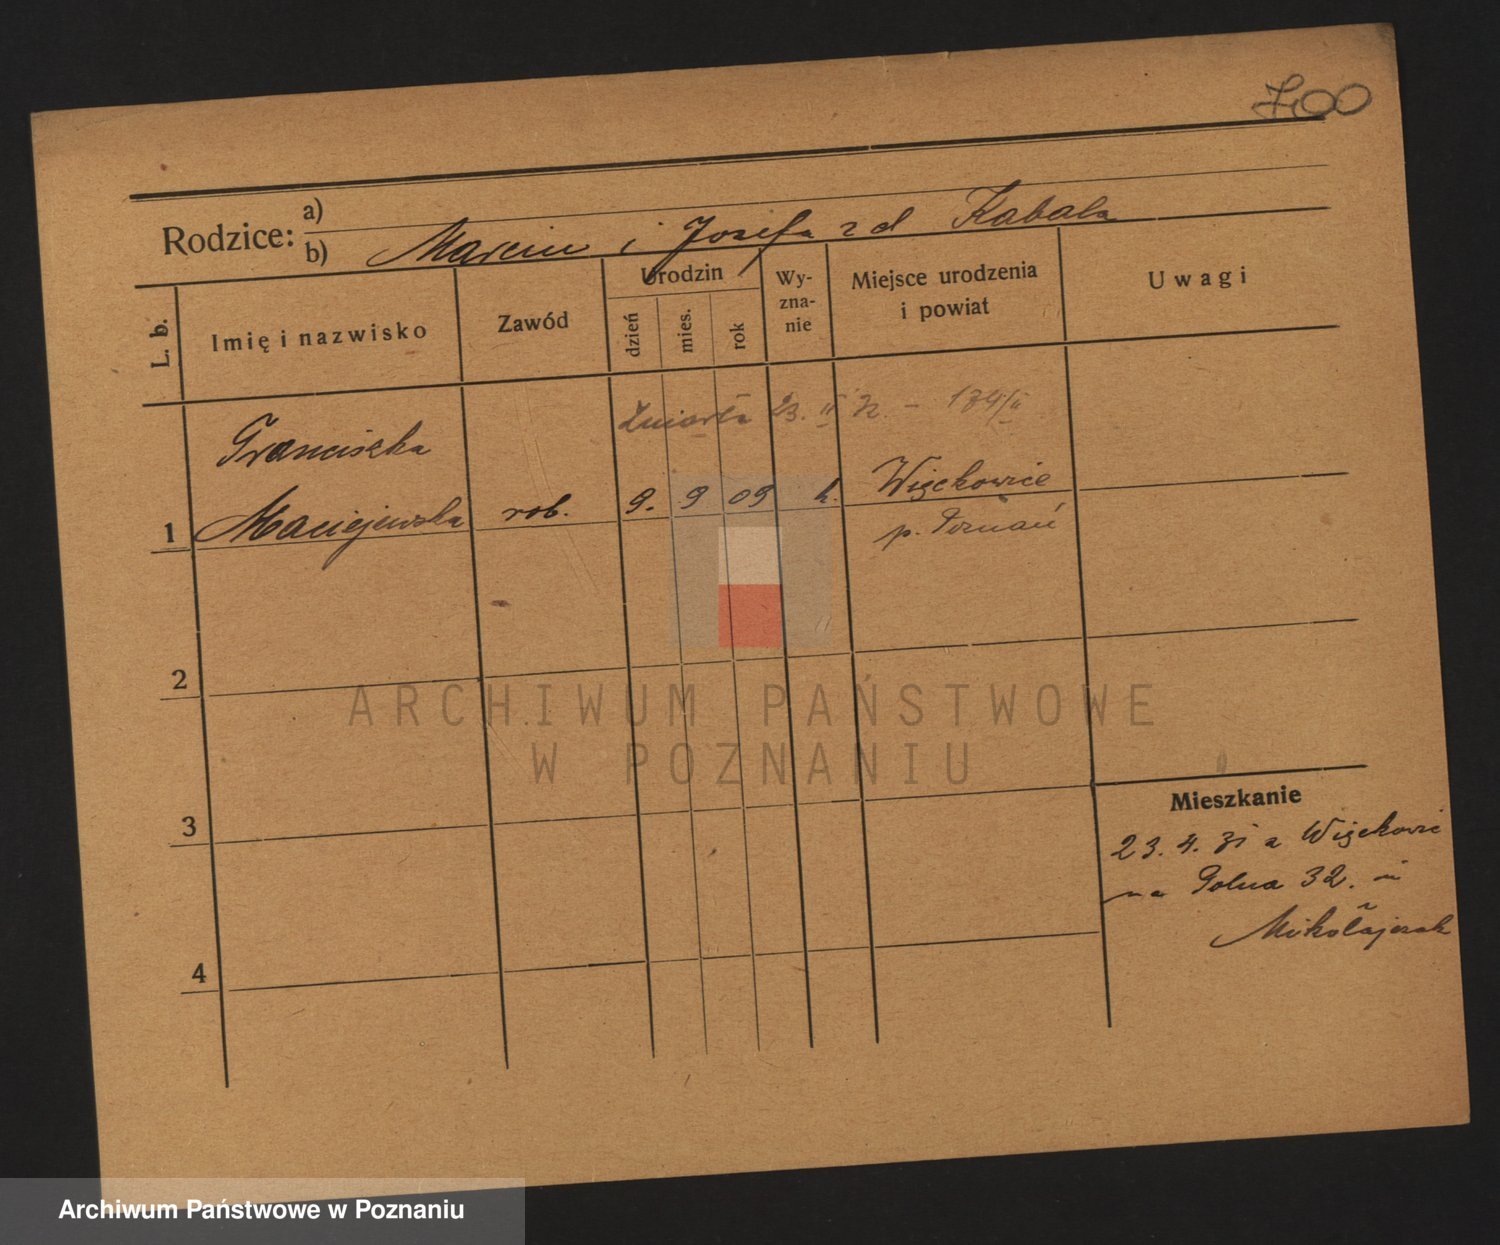 700
Rodzice: a)
b) Marcin i Józefa z d Kabala
L. b.
Imię i nazwisko
Zawód
Urodzin
dzień
mies.
rok
Wy-
zna-
nie
Miejsce urodzenia
i powiat
Uwagi
Zmarła 23. II 32. – 134/II
Franciszka
1 Maciejewska rob. 9. 9 09 k. Więckowice
p. Poznań
2
3
4
ARCHIWUM PAŃSTWOWE
W POZNANIU
Mieszkanie
23. 4. 31 z Więckowic
na Polna 32.
Mikołajczak
Archiwum Państwowe w Poznaniu